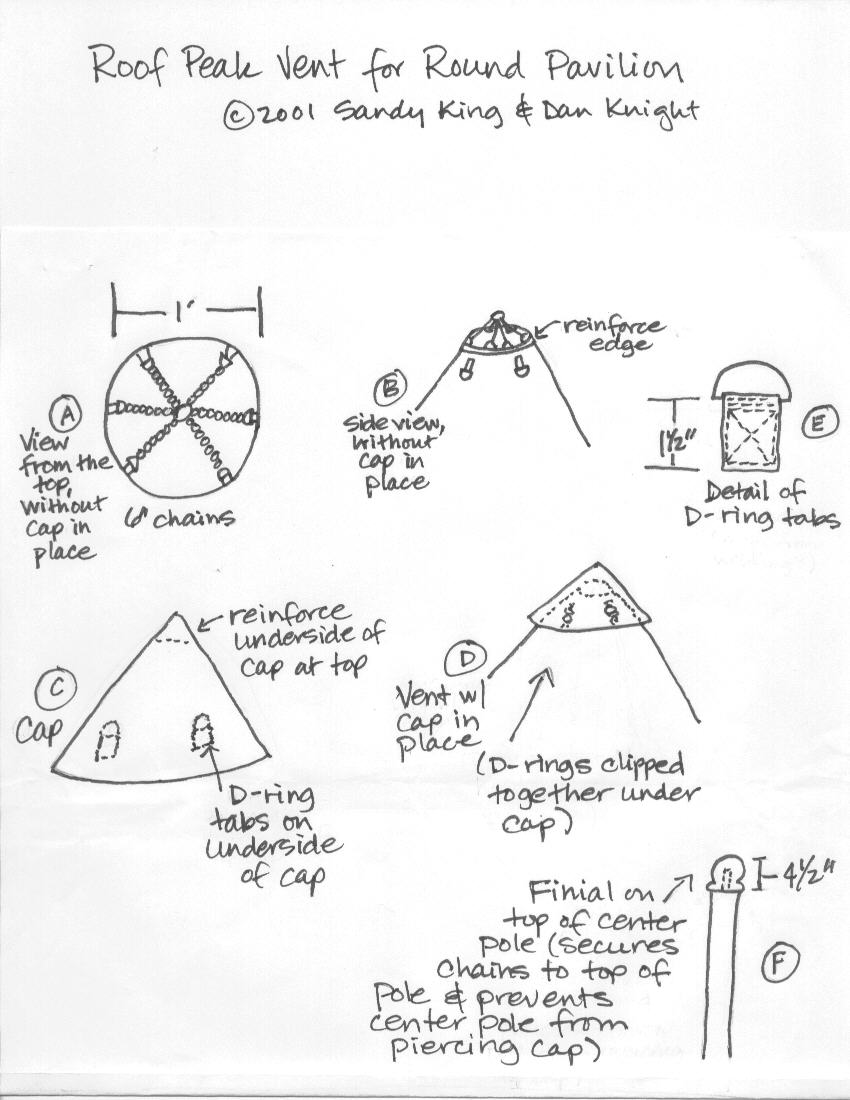 Roof Peak Vent for Round Pavilion
©2001 Sandy King & Dan Knight
1'
A
View
from the
top,
without
cap in
place
6" chains
B
side view,
without
cap in
place
reinforce
edge
E
1½"
Detail of
D-ring tabs
C
Cap
reinforce
underside of
cap at top
D-ring
tabs on
underside
of cap
D
Vent w/
cap in
place
(D-rings clipped
together under
cap)
F
4½"
Finial on
top of center
pole (secures
chains to top of
pole & prevents
center pole from
piercing cap)